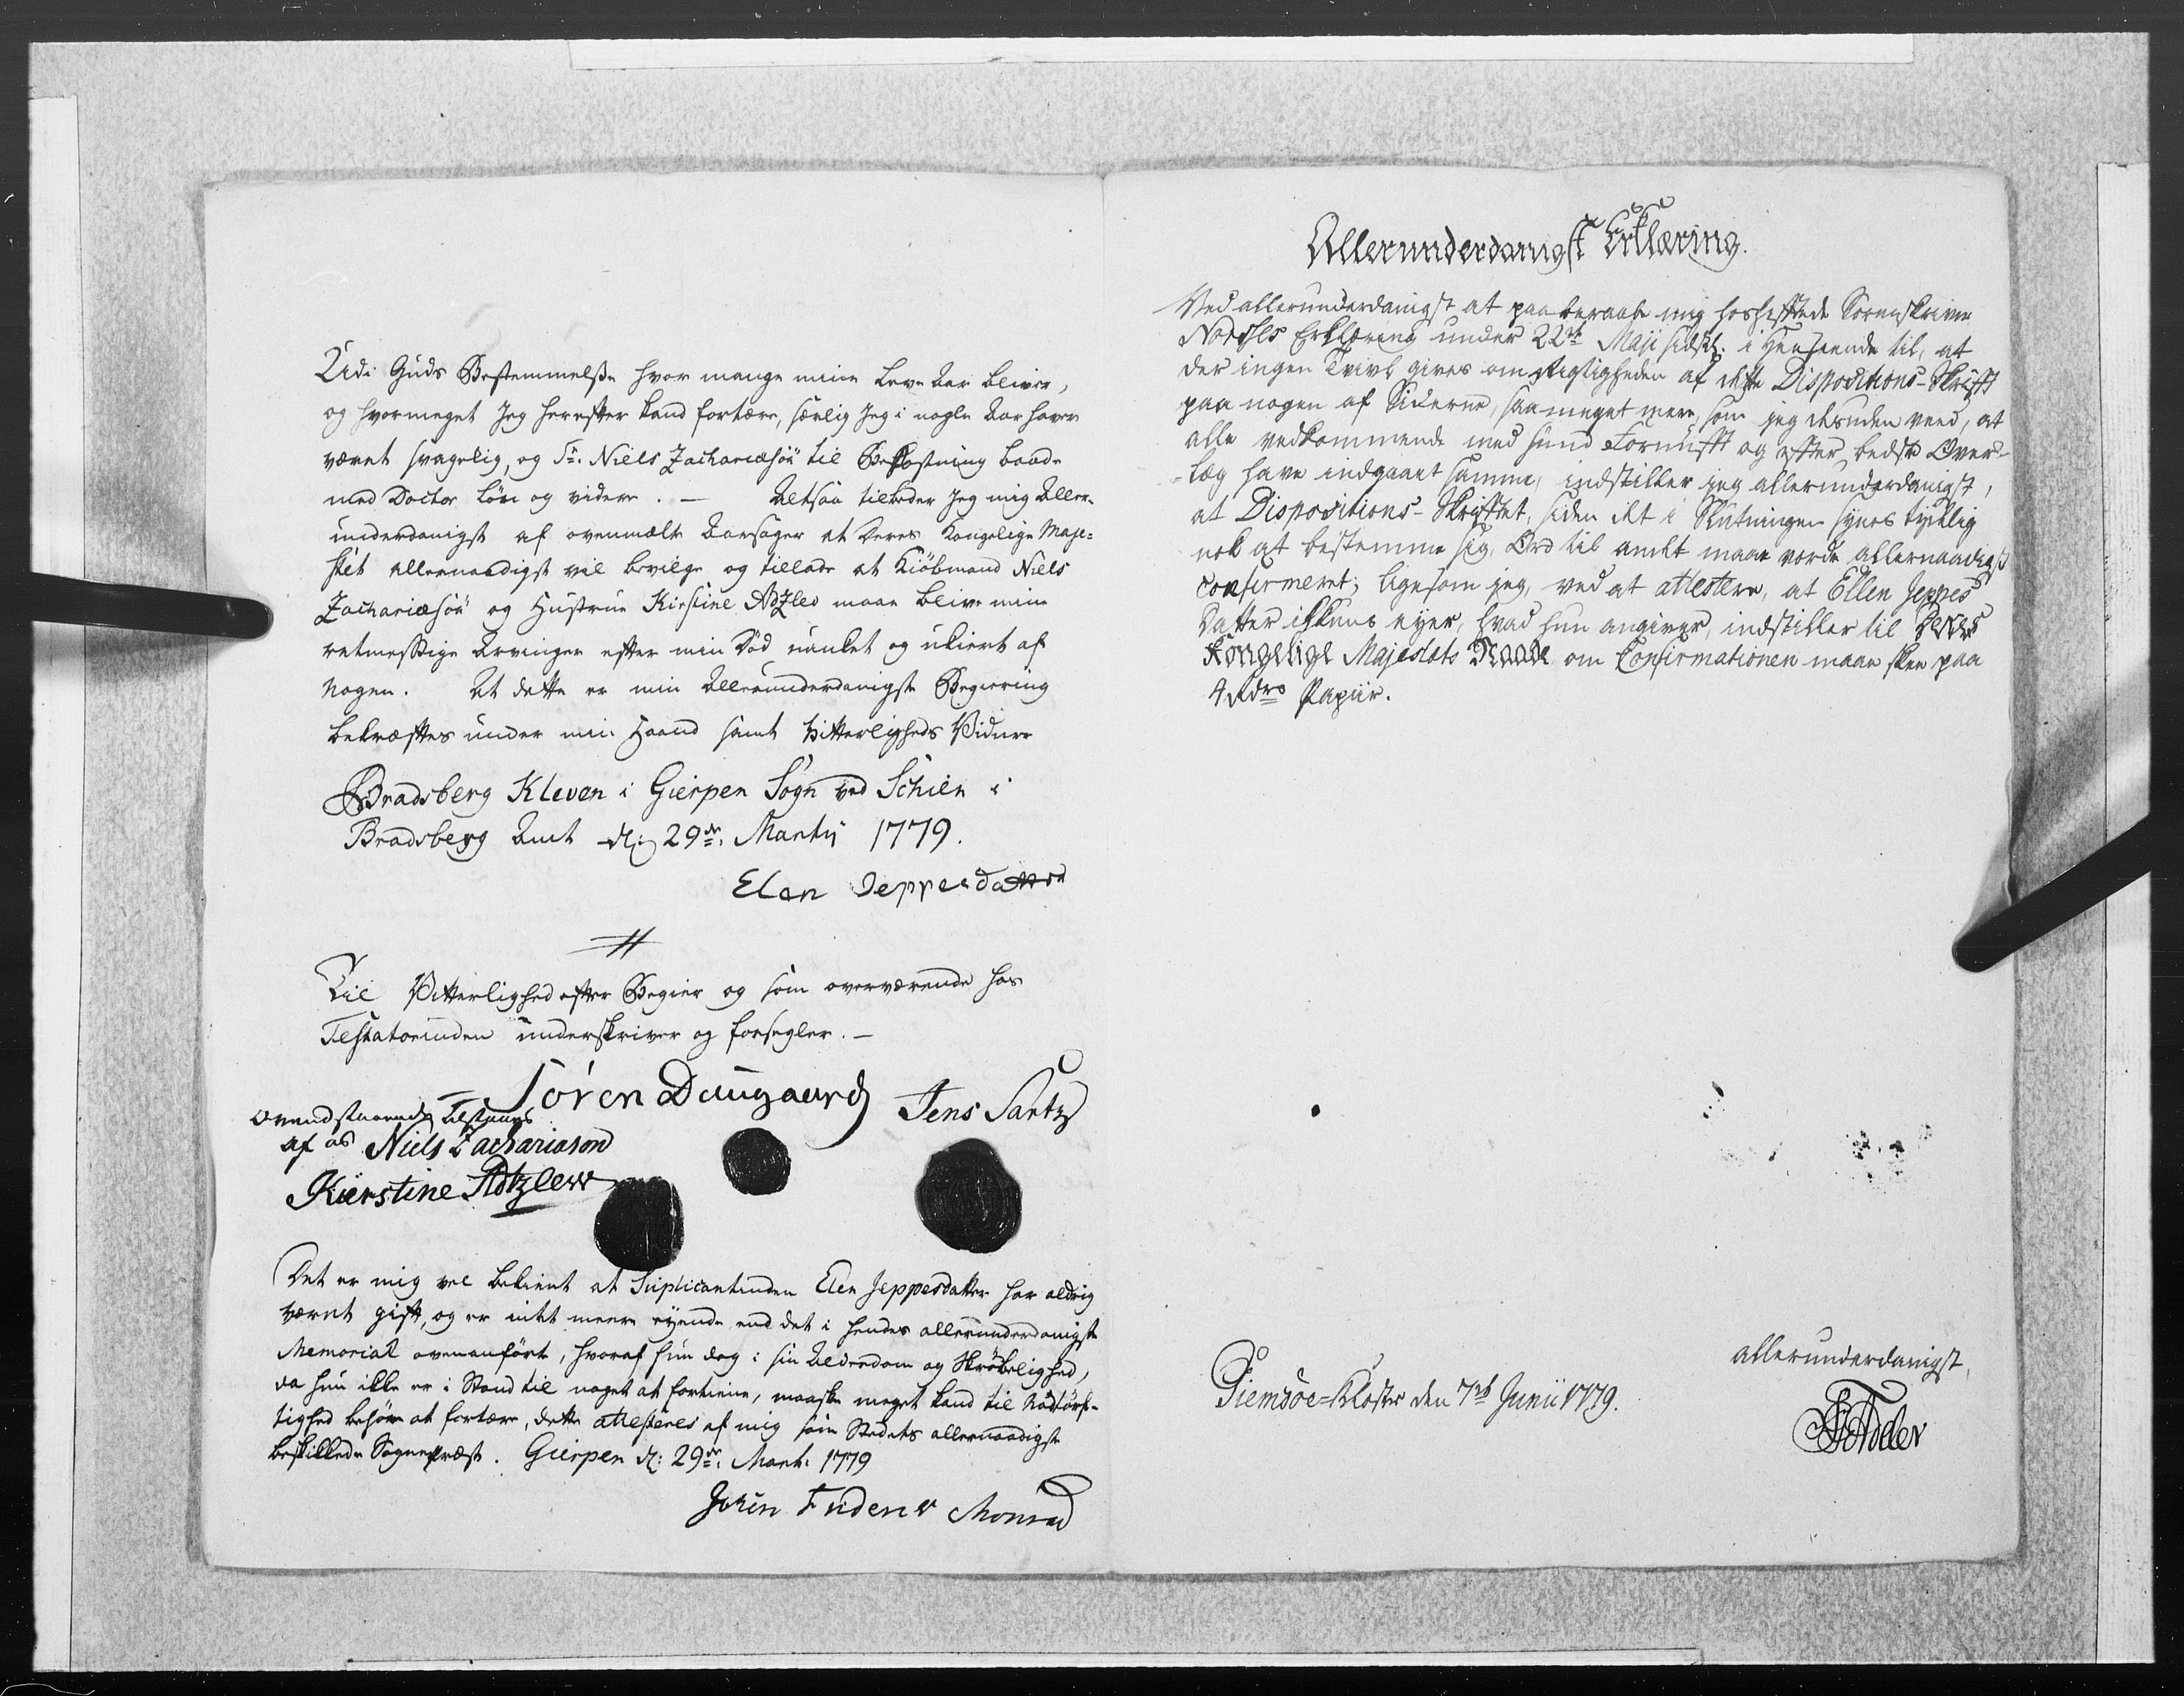 Udi Guds Bestemmelse hvor mange mine Leve Aar bliver,
og hvormeget Jeg herefter kand fortære, særlig Jeg i nogle Aar haver
været svagelig, og Sr. Niels Zachariæsön til Bekostning baade
med Doctor Lön og videre. — Altsaa tilbeder Jeg mig Aller-
underdanigst af ovenmelte Aarsager at Deres Kongelige Maje-
stet allernaadigst vil bevilge og tillade at Kiöbmand Niels
Zachariæsön og Hustrue Kirstine Adzlev maae blive mine
retmessige Arvinger efter min Död uanket og ukiert af
Nogen. At dette er min Allerunderdanigste Begiering
bekræftes under min Haand samt Vitterligheds Vidner
Bradsberg Kleven i Gierpen Sogn ved Schien i
Bradsberg Amt d: 29de Martij 1779.
Elen Jeppesdatter
Til Vitterlighed efter Begier og som overværende hos
Testatorinden underskriver og forsegler. —
Sören Daugaard Jens Sartz
Ovenstaaende tilstaaes
af os Niels Zachariason
Kierstine Adtzlew
Det er mig vel bekient at Suplicantinden Elen Jeppesdatter har aldrig
været gift, og er intet meere eyende end det i hendes allerunderdanigste
Memorial ovenanförte, hvoraf hun dog i sin Alderdom og Skröbelighed,
da hun ikke er i Stand til noget at fortiene, maaske meget kand til Nödtörf-
tighed behöve at fortære, dette attesteres af mig som Stedets allernaadigst
beskikkede Sognepræst. Gierpen d: 29de Mart: 1779
John Frider Monrad
Allerunderdanigst Erklæring.
Ved allerunderdanigst at paaberaabe mig hosheftede Sorenskriver
Erklæring under 22de Maji sidstl. i Henseende til, at
der ingen Tvivl gives om Rigtigheden af dette Dispositions-Skrift
paa nogen af Siderne, saameget mere, som jeg desuden veed, at
alle vedkommende med sund Fornuft og efter bedste Over-
-læg have indgaaet samme, indstiller jeg allerunderdanigst,
at Dispositions-Skriftet, siden det i Slutningen synes tydelig
nok at bestemme sig, Ord til andet maae vorde allernaadigst
confirmeret; ligesom jeg, ved at attestere, at Ellen Jeppes
Datter ikkuns eyer, hvad hun angiver, indstiller til Deres
Kongelige Majestæts Naade om Confirmationen maae skee paa
4 Rdrs Papiir.
Giemsöe-Kloster den 7de Junii 1779.
allerunderdanigst,
Adeler